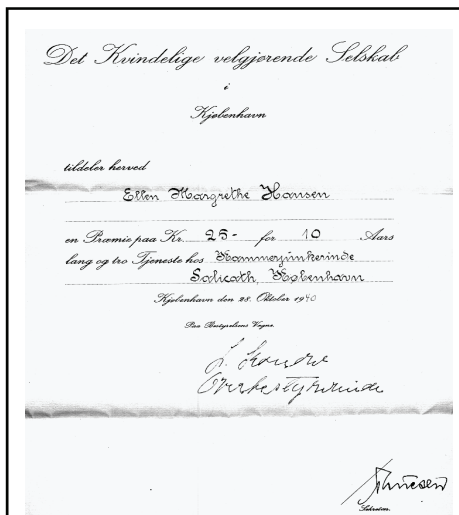 Det Kvindelige velgjørende Selskab
i
Kjøbenhavn
tildeler herved
Ellen Margrethe Hansen
en Præmie paa Kr. 25- for 10 Aars
lang og tro Tjeneste hos Kammerjunkerinde
Sadicath, København
Kjøbenhavn den 28. Oktober 1940
Paa Bestyrelsens Vegne.
Overbestyrerinde
Sekretær.